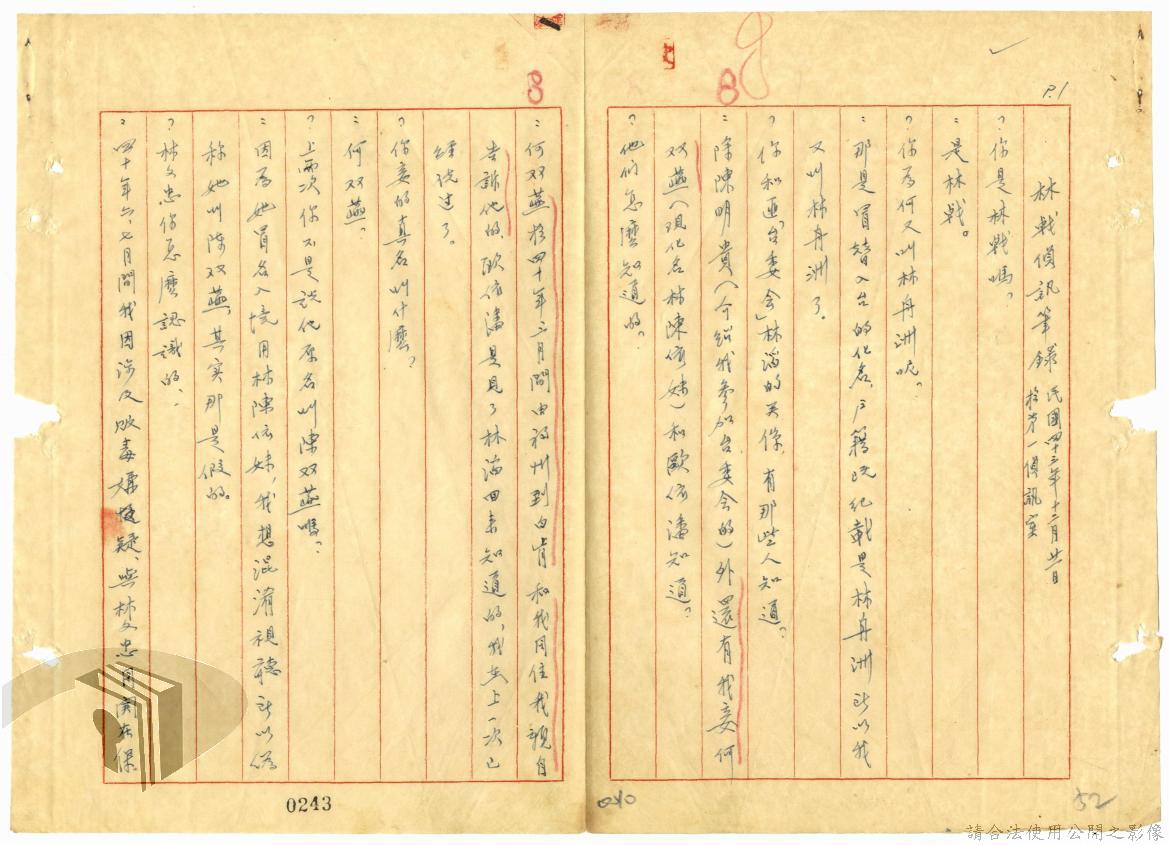 P.1
林戟偵訊筆錄 民國四十三年十二月廿日
於第一偵訊室
?你是林戟嗎?
:是林戟。
?你為何又叫林舟洲呢?
:那是冒替入台的化名,戶籍既紀載是林舟洲所以我
又叫林舟洲了。
?你和匪「台委会」林滔的关係,有那些人知道?
:除陳明貴(介紹我參加台委会的)外還有我妾何
双燕(現化名林陳依妹)和歐依潘知道。
?他们怎麼知道的?
:何双燕於四十年三月間由福州到白肯和我同住我親自
告訴他的,歐依潘是見了林滔回來知道的,我在上一次已
經說过了。
?你妾的真名叫什麼?
:何双燕。
?上兩次你不是說他原名叫陳双燕嗎?
:因為她冒名入境用林陳依妹,我想混淆視聽所以偽
称她叫陈双燕,其实那是假的。
?林文忠你怎麼認識的、
:四十年六、七月間我因涉及販毒嫌疑、與林文忠同關在保
8
8
0243
040
52
請合法使用公開之影像